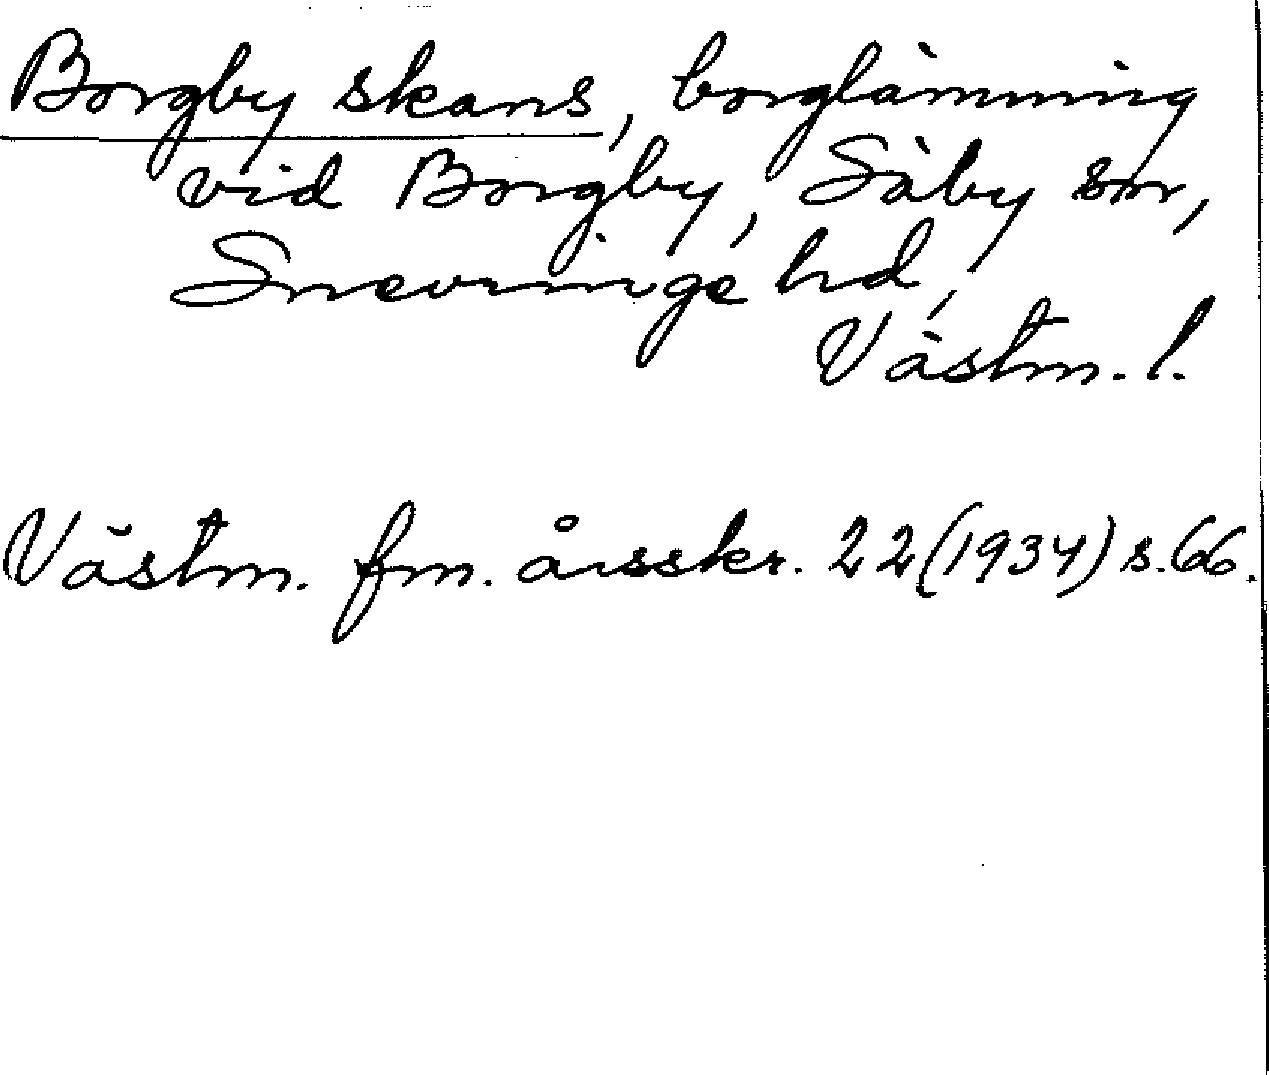 Borgby skans, borglämning
vid Borgby, Säby sn,
Snevringe hd,
Västm. l.
Västm. fm. årsskr. 22 (1934) s. 66.